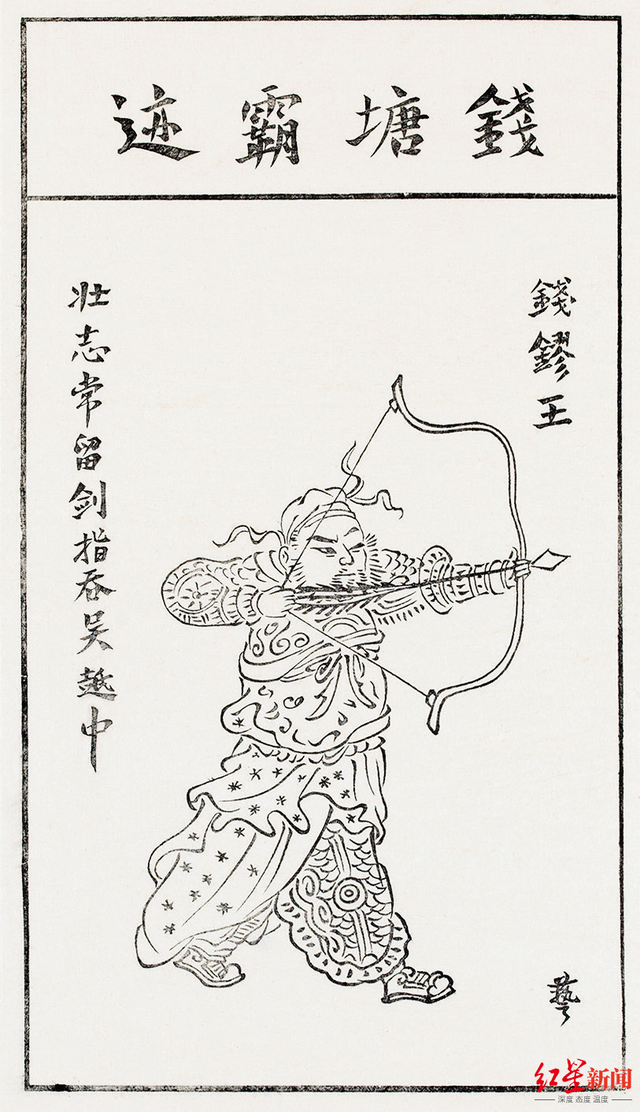 錢塘霸迹
錢鏐王
壯志常留剑指吞吴越中
藝
红星新闻
深度 态度 温度